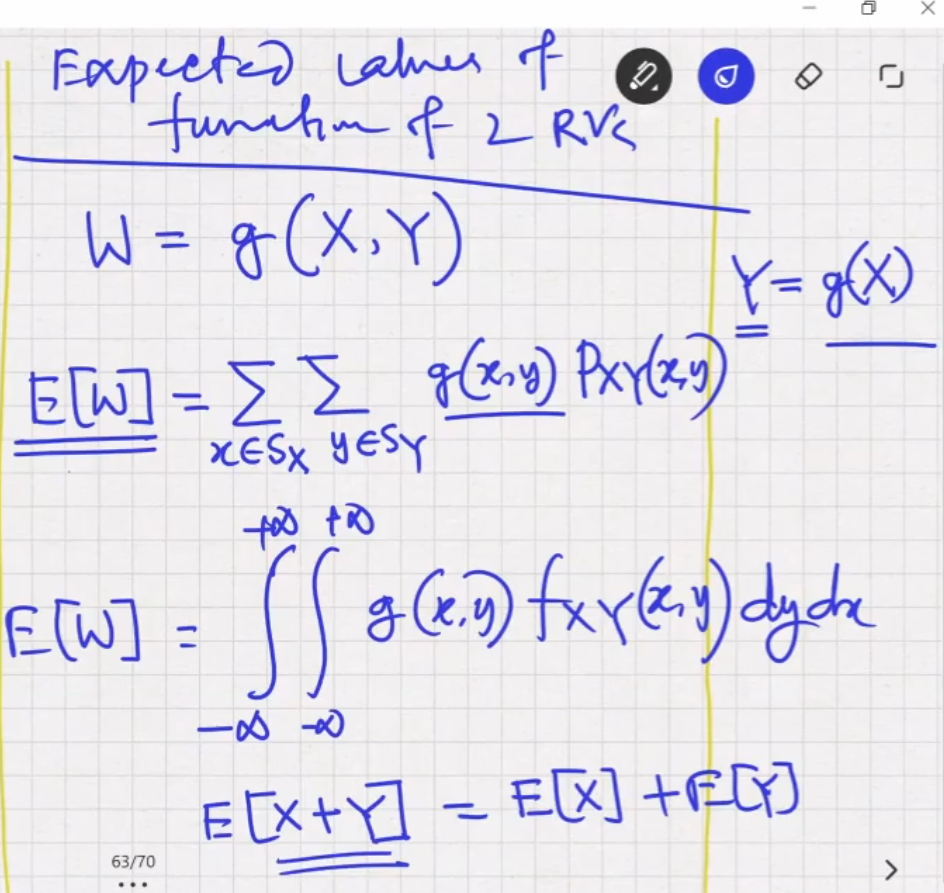 Expected values of
function of 2 RVs
W = g(X,Y)
Y = g(X)
E[W] = ∑ ∑ g(x,y) P_XY(x,y)
x∈S_X y∈S_Y
+∞ +∞
E[W] = ∫∫ g(x,y) f_XY(x,y) dy dx
-∞ -∞
E[X+Y] = E[X] + E[Y]
63/70